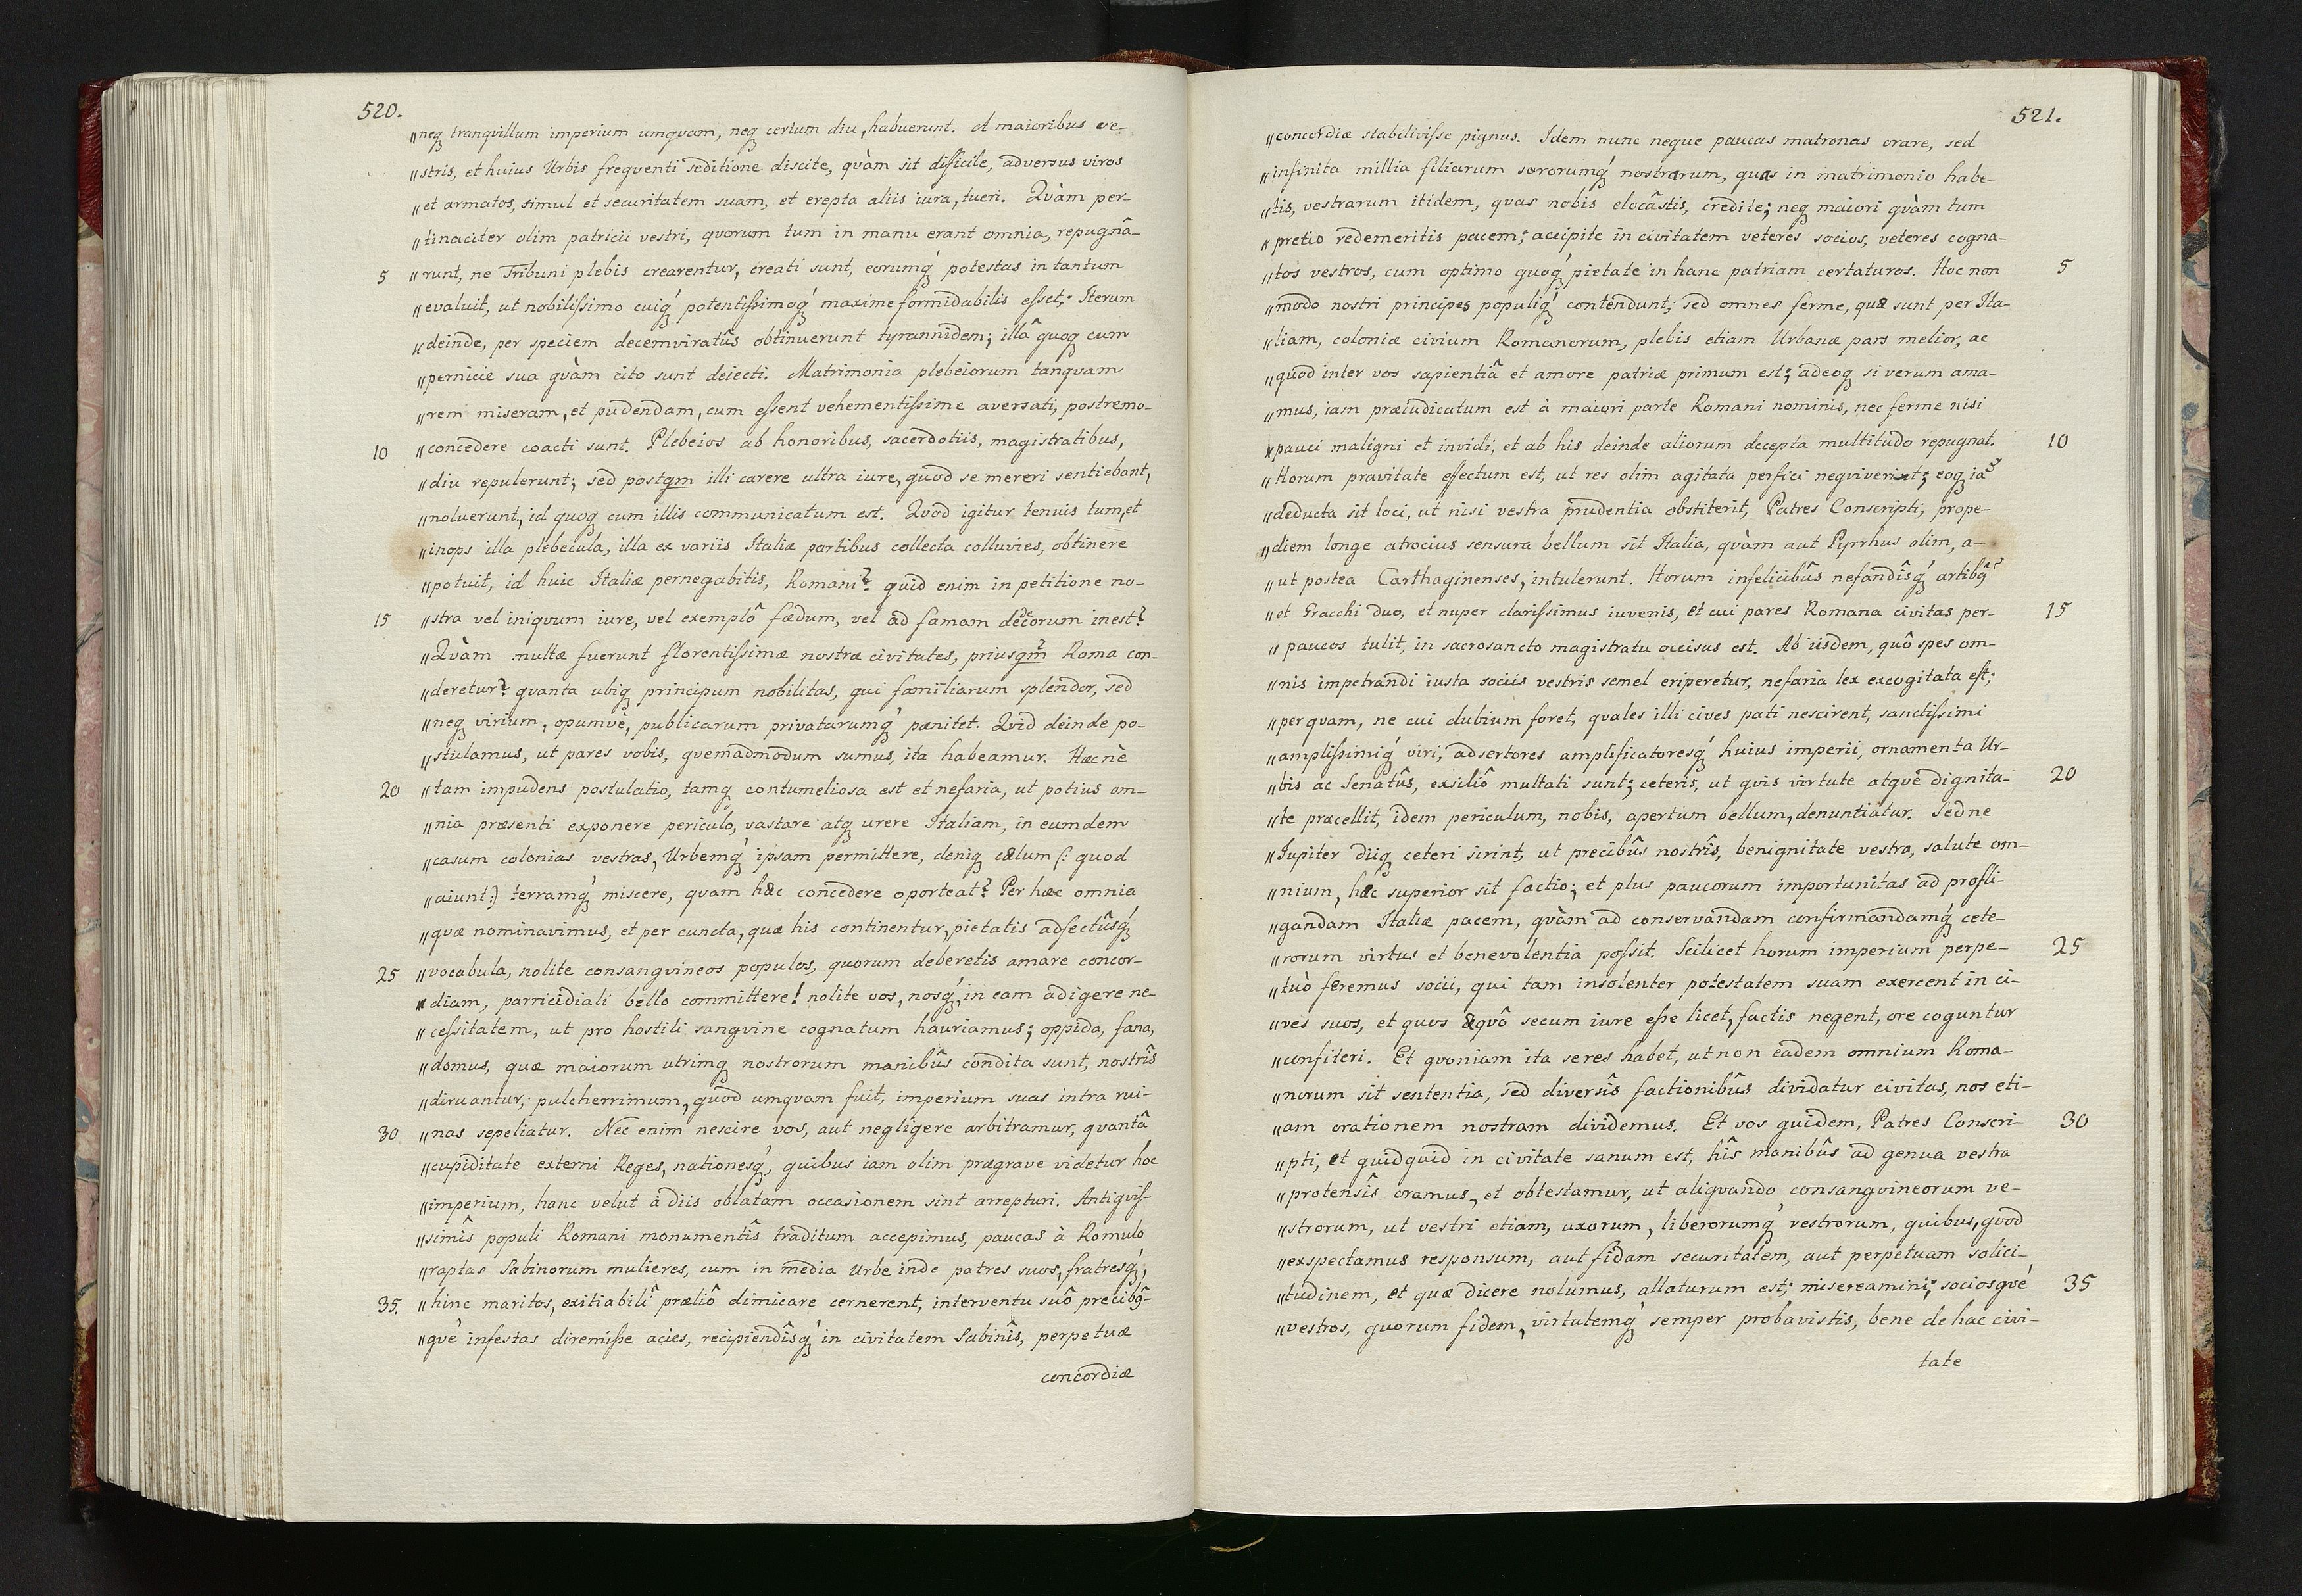 520.
„neq; tranqvillum imperium umqvam, neq; certum diu, habuerunt. A maioribus ve-
„stris, et huius Urbis freqventi seditione discite, qvàm sit difficile, adversus viros
„et armatos, simul et securitatem suam, et erepta aliis iura, tueri. Qvàm per-
„tinaciter olim patricii vestri, qvorum tum in manu erant omnia, repugnâ-
5 „runt, ne Tribuni plebis crearentur, creati sunt, eorumq́; potestas in tantum
„evaluit, ut nobilissimo cuiq́; potentissimoq́; maxime formidabilis esset; Iterum
„deinde, per speciem decemviratûs obtinuerunt tyrannidem; illâ quoq; cum
„pernicie sua qvàm cito sunt deiecti. Matrimonia plebeiorum tanqvam
„rem miseram, et pudendam, cum essent vehementissime aversati, postremo
10 „concedere coacti sunt. Plebeios ab honoribus, sacerdotiis, magistratibus,
„diu repulerunt; sed postqm illi carere ultra iure, quod se mereri sentiebant,
„noluerunt, id quoq; cum illis communicatum est. Qvod igitur tenuis tum, et
„inops illa plebecula, illa ex variis Italiæ partibus collecta colluvies, obtinere
„potuit, id huic Italiæ pernegabitis, Romani? quid enim in petitione no-
15 „stra vel iniqvum iure, vel exemplô fœdum, vel ad famam dedecorum inest?
„Qvàm multæ fuerunt florentissimæ nostræ civitates, priusqm̃ Roma con-
„deretur? qvanta ubiq; principum nobilitas, qui familiarum splendor, sed
„neq; virium, opumvè, publicarum privatarumq́; pœnitet. Qvid deinde po-
„stulamus, ut pares vobis, qvemadmodum sumus, ita habeamur. Hæcnè
20 „tam impudens postulatio, tamq; contumeliosa est et nefaria, ut potius om-
„nia præsenti exponere periculo, vastare atq; urere Italiam, in eumdem
„casum colonias vestras, Urbemq́; ipsam permittere, deniq; cælum (: quod
„aiunt:) terramq́; miscere, quam hæc concedere oporteat? Per hæc omnia
„qvæ nominavimus, et per cuncta, quæ his continentur, pietatis adfectûsq́;
25 „vocabula, nolite consangvineos populos, quorum deberetis amare concor-
„diam, parricidiali bello committere! nolite vos, nosq́;, in eam adigere ne-
„cessitatem, ut pro hostili sangvine cognatum hauriamus; oppida, fana,
„domus, quæ maiorum utrimq; nostrorum manibûs condita sunt, nostrîs
„diruantur; pulcherrimum, quod umqvam fuit, imperium suas intra rui-
30 „nas sepeliatur. Nec enim nescire vos, aut negligere arbitramur, qvantâ
„cupiditate externi Reges, nationesq́;, quibus iam olim prægrave videtur hoc
„imperium, hanc velut à diis oblatam occasionem sint arrepturi. Antiqvis-
„simîs populi Romani monumentîs traditum accepimus, paucas à Romulo
„raptas Sabinorum mulieres, cum in media Urbe inde patres suos, fratresq́;,
35. „hinc maritos, exitiabilî præliô dimicare cernerent, interventu suô precibq̂-
„qvé infestas diremisse acies, recipiendîsq́; in civitatem Sabinîs, perpetuæ
concordiæ
521.
„concordiæ stabilivisse pignus. Idem nunc neque paucas matronas orare, sed
„infinita millia filiarum sororumq́; nostrarum, quas in matrimonio habe-
„tis, vestrarum itidem, qvas nobis elocâstis, credite; neq; maiori qvàm tum
„pretio redemeritis pacem; accipite in civitatem veteres socios, veteres cogna-
„tos vestros, cum optimo quoq́; pietate in hanc patriam certaturos. Hoc non 5
„modo nostri principes populiq́; contendunt; sed omnes ferme, quæ sunt per Ita-
„liam, coloniæ civium Romanorum, plebis etiam Urbanæ pars melior, ac
„quod inter vos sapientiâ et amore patriæ primum est; adeoq; si verum ama-
„mus, iam præiudicatum est à maiori parte Romani nominis, nec ferme nisi
„pauci maligni et invidi, et ab his deinde aliorum decepta multitudo repugnat. 10
„Horum pravitate effectum est, ut res olim agitata perfici neqviverit; eoq; ia᷒
„deducta sit loci, ut nisi vestra prudentia obstiterit, Patres Conscripti, prope-
„diem longe atrocius sensura bellum sit Italia, qvàm aut Pyrrhus olim, a-
„ut postea Carthaginenses, intulerunt. Horum infelicibûs nefandîsq́; artibq̂
„et Gracchi duo, et nuper clarissimus iuvenis, et cui pares Romana civitas per- 15
„paucos tulit, in sacrosancto magistratu occisus est. Ab iisdem, quô spes om-
„nis impetrandi iusta sociis vestris semel eriperetur, nefaria lex excogitata est;
„per qvam, ne cui dubium foret, qvales illi cives pati nescirent, sanctissimi
„amplissimiq́; viri, adsertores amplificatoresq́; huius imperii, ornamenta Ur-
„bis ac Senatûs, exsiliô multati sunt; ceteris, ut qvis virtute atqvè dignita- 20
„te præcellit, idem periculum, nobis, apertum bellum, denuntiatur. Sed ne
„Iupiter diiq; ceteri sirint, ut precibûs nostrîs, benignitate vestra, salute om-
„nium, hæc superior sit factio; et plus paucorum importunitas ad profli-
„gandam Italiæ pacem, qvàm ad conservandam confirmandamq́; cete-
„rorum virtus et benevolentia possit. Scilicet horum imperium perpe- 25
„tuò feremus socii, qui tam insolenter potestatem suam exercent in ci-
„ves suos, et quos æqvô secum iure esse licet, factis negent, ore coguntur
„confiteri. Et qvoniam ita se res habet, ut non eadem omnium Roma-
„norum sit sententia, sed diversîs factionibûs dividatur civitas, nos eti-
„am orationem nostram dividemus. Et vos quidem, Patres Conscri- 30
„pti, et quidquid in civitate sanum est, hîs manibûs ad genua vestra
„protensîs oramus, et obtestamur, ut aliqvando consangvineorum ve-
„strorum, ut vestri etiam, uxorum, liberorumq́; vestrorum, quibus, qvod
„exspectamus responsum, aut fidam securitatem, aut perpetuam solici-
„tudinem, et quæ dicere nolumus, allaturum est; misereamini; sociosqvé 35
„vestros, quorum fidem, virtutemq́; semper probavistis, bene de hac civi-
tate